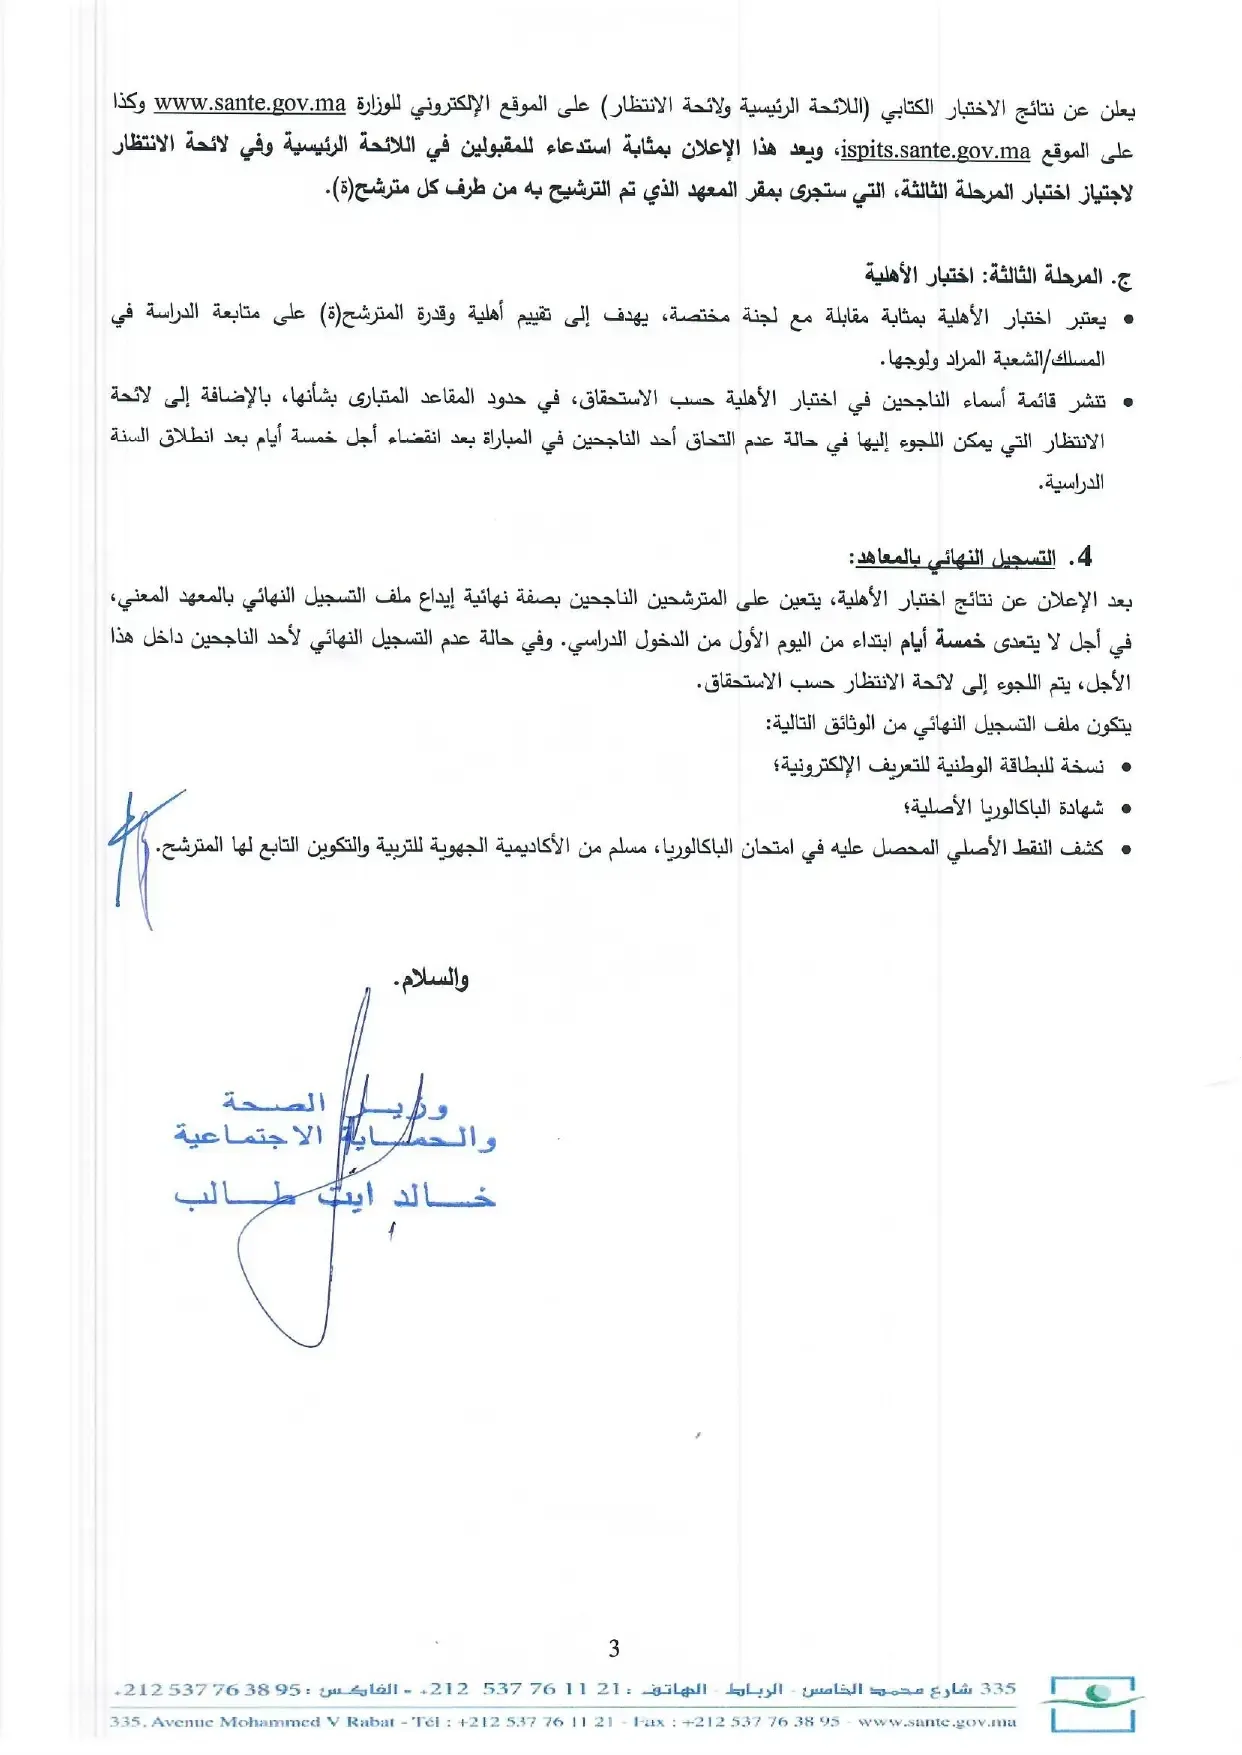 يعلن عن نتائج الاختبار الكتابي (اللائحة الرئيسية ولائحة الانتظار) على الموقع الإلكتروني للوزارة www.sante.gov.ma وكذا
على الموقع ispits.sante.gov.ma، ويعد هذا الإعلان بمثابة استدعاء للمقبولين في اللائحة الرئيسية وفي لائحة الانتظار
لاجتياز اختبار المرحلة الثالثة، التي ستجرى بمقر المعهد الذي تم الترشيح به من طرف كل مترشح(ة).
ج. المرحلة الثالثة: اختبار الأهلية
• يعتبر اختبار الأهلية بمثابة مقابلة مع لجنة مختصة، يهدف إلى تقييم أهلية وقدرة المترشح(ة) على متابعة الدراسة في
المسلك/الشعبة المراد ولوجها.
• تنشر قائمة أسماء الناجحين في اختبار الأهلية حسب الاستحقاق، في حدود المقاعد المتبارى بشأنها، بالإضافة إلى لائحة
الانتظار التي يمكن اللجوء إليها في حالة عدم التحاق أحد الناجحين في المباراة بعد انقضاء أجل خمسة أيام بعد انطلاق السنة
الدراسية.
4. التسجيل النهائي بالمعاهد:
بعد الإعلان عن نتائج اختبار الأهلية، يتعين على المترشحين الناجحين بصفة نهائية إيداع ملف التسجيل النهائي بالمعهد المعني،
في أجل لا يتعدى خمسة أيام ابتداء من اليوم الأول من الدخول الدراسي. وفي حالة عدم التسجيل النهائي لأحد الناجحين داخل هذا
الأجل، يتم اللجوء إلى لائحة الانتظار حسب الاستحقاق.
يتكون ملف التسجيل النهائي من الوثائق التالية:
• نسخة للبطاقة الوطنية للتعريف الإلكترونية؛
• شهادة الباكالوريا الأصلية؛
• كشف النقط الأصلي المحصل عليه في امتحان الباكالوريا، مسلم من الأكاديمية الجهوية للتربية والتكوين التابع لها المترشح.
والسلام.
وزير الصحة
والحماية الاجتماعية
خالد ايت طالب
3
335 شارع محمد الخامس - الرباط - الهاتف : 21 11 76 537 212+ - الفاكس : 95 38 76 537 212+
335, Avenue Mohammed V Rabat - Tél : +212 537 76 11 21 - Fax : +212 537 76 38 95 - www.sante.gov.ma